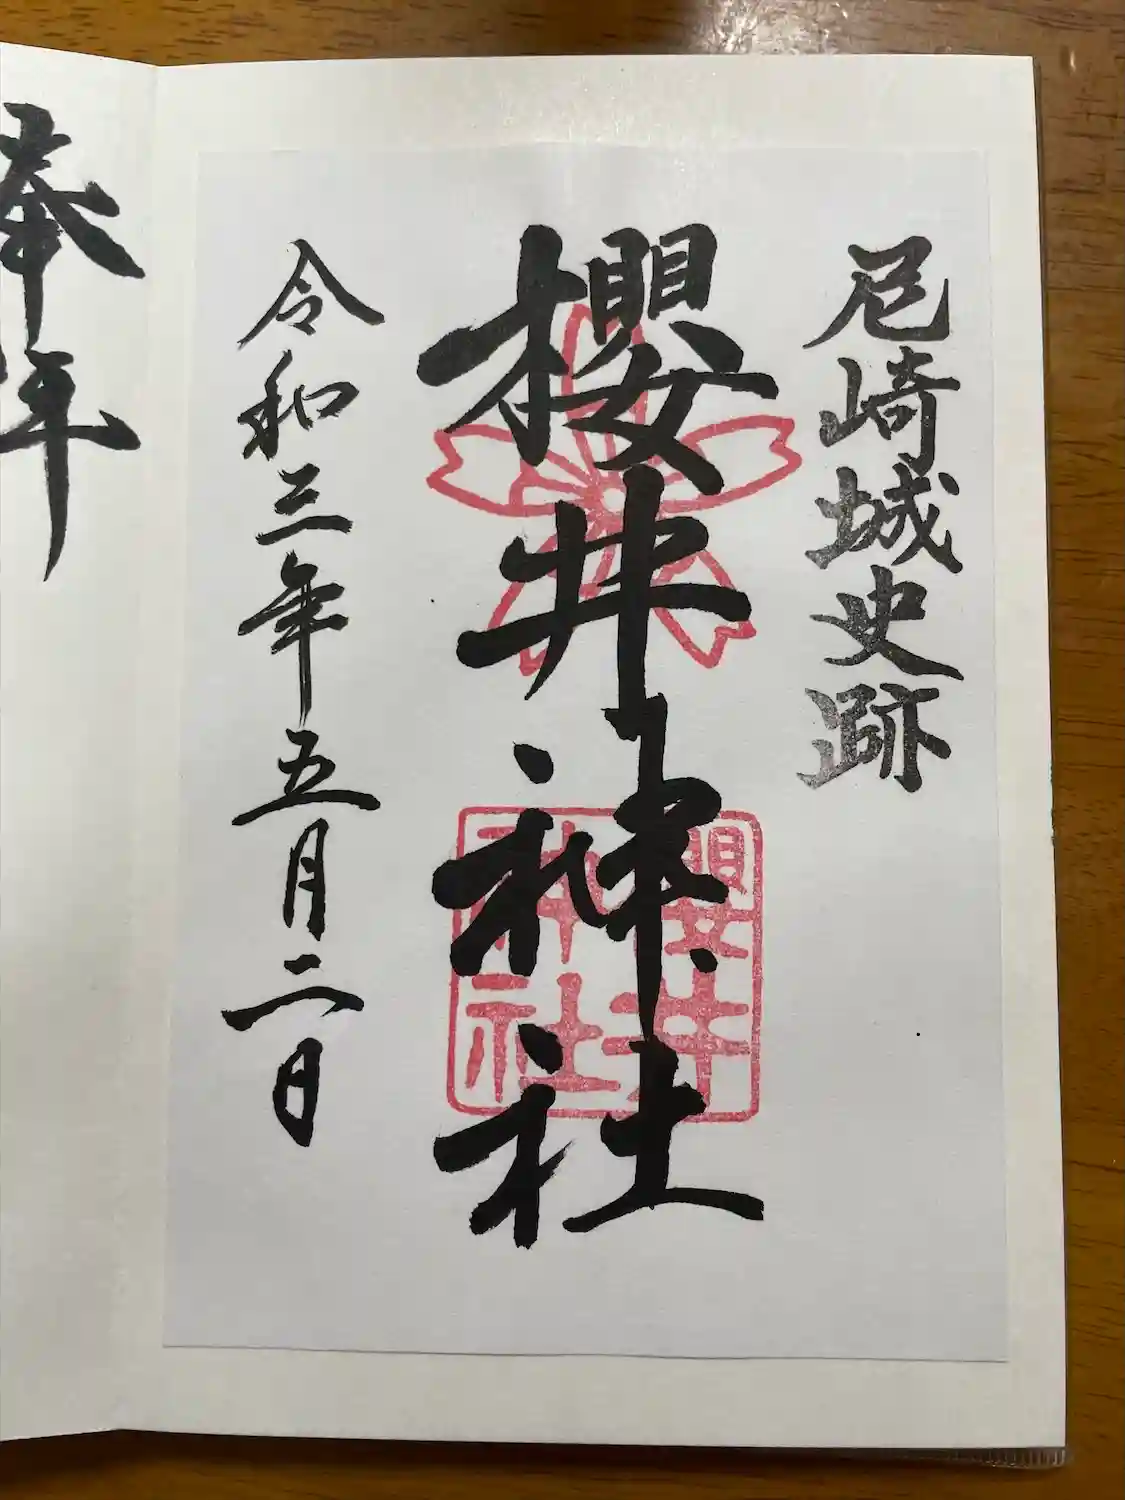 尼崎城史跡
櫻井神社
櫻井
神社
令和三年五月二日
奉
年